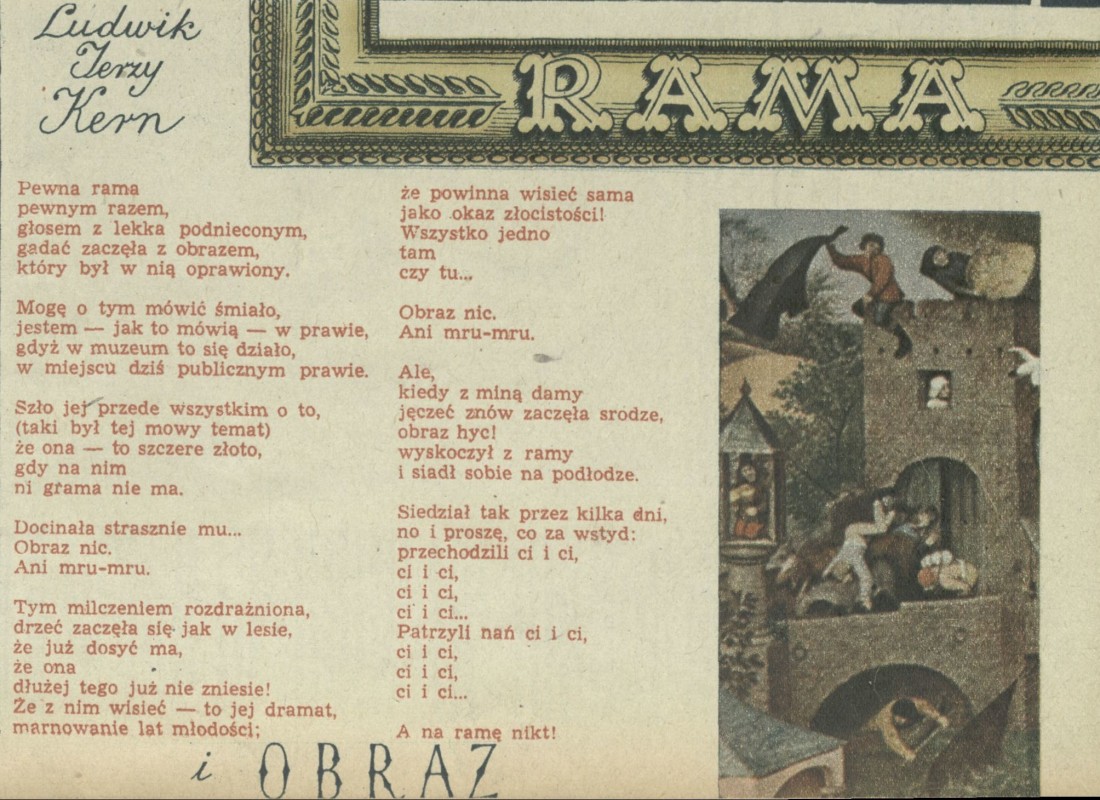 Ludwik
Jerzy
Kern
RAMA
Pewna rama
pewnym razem,
głosem z lekka podnieconym,
gadać zaczęła z obrazem,
który był w nią oprawiony.
Mogę o tym mówić śmiało,
jestem — jak to mówią — w prawie,
gdyż w muzeum to się działo,
w miejscu dziś publicznym prawie.
Szło jej przede wszystkim o to,
(taki był tej mowy temat)
że ona — to szczere złoto,
gdy na nim
ni grama nie ma.
Docinała strasznie mu...
Obraz nic.
Ani mru-mru.
Tym milczeniem rozdrażniona,
drzeć zaczęła się jak w lesie,
że już dosyć ma,
że ona
dłużej tego już nie zniesie!
Że z nim wisieć — to jej dramat,
marnowanie lat młodości;
że powinna wisieć sama
jako okaz złocistości!
Wszystko jedno
tam
czy tu...
Obraz nic.
Ani mru-mru.
Ale,
kiedy z miną damy
jęczeć znów zaczęła srodze,
obraz hyc!
wyskoczył z ramy
i siadł sobie na podłodze.
Siedział tak przez kilka dni,
no i proszę, co za wstyd:
przechodzili ci i ci,
ci i ci,
ci i ci,
ci i ci...
Patrzyli nań ci i ci,
ci i ci,
ci i ci,
ci i ci...
A na ramę nikt!
i OBRAZ